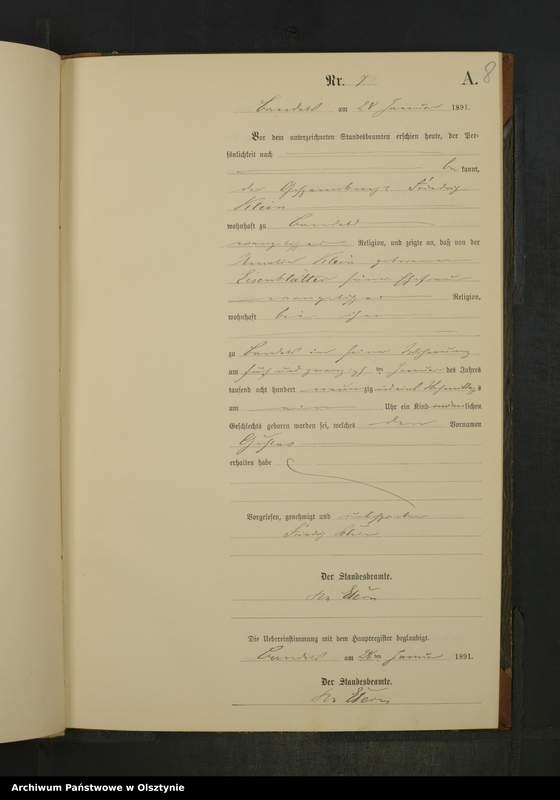 Nr. 7
A. 8
am 28 Januar 1891.
Vor dem unterzeichneten Standesbeamten erschien heute, der Per-
sönlichkeit nach
be kannt,
der Friedrich
Klein
wohnhaft zu
evangelischer Religion, und zeigte an, daß von der
Amalie Klein geborenen
Eisenblätter seiner Ehefrau
evangelischer Religion,
wohnhaft bei ihm
zu in seiner Wohnung
am fünf und zwanzigsten Januar des Jahres
tausend acht hundert neun zig und eins Nachmittags
um ein Uhr ein Kind männlichen
Geschlechts geboren worden sei, welches den Vornamen
Gustav
erhalten habe
Vorgelesen, genehmigt und unterschrieben
Friedrich Klein
Der Standesbeamte.
Die Uebereinstimmung mit dem Hauptregister beglaubigt.
am 28ten Januar 1891.
Der Standesbeamte.
Archiwum Państwowe w Olsztynie